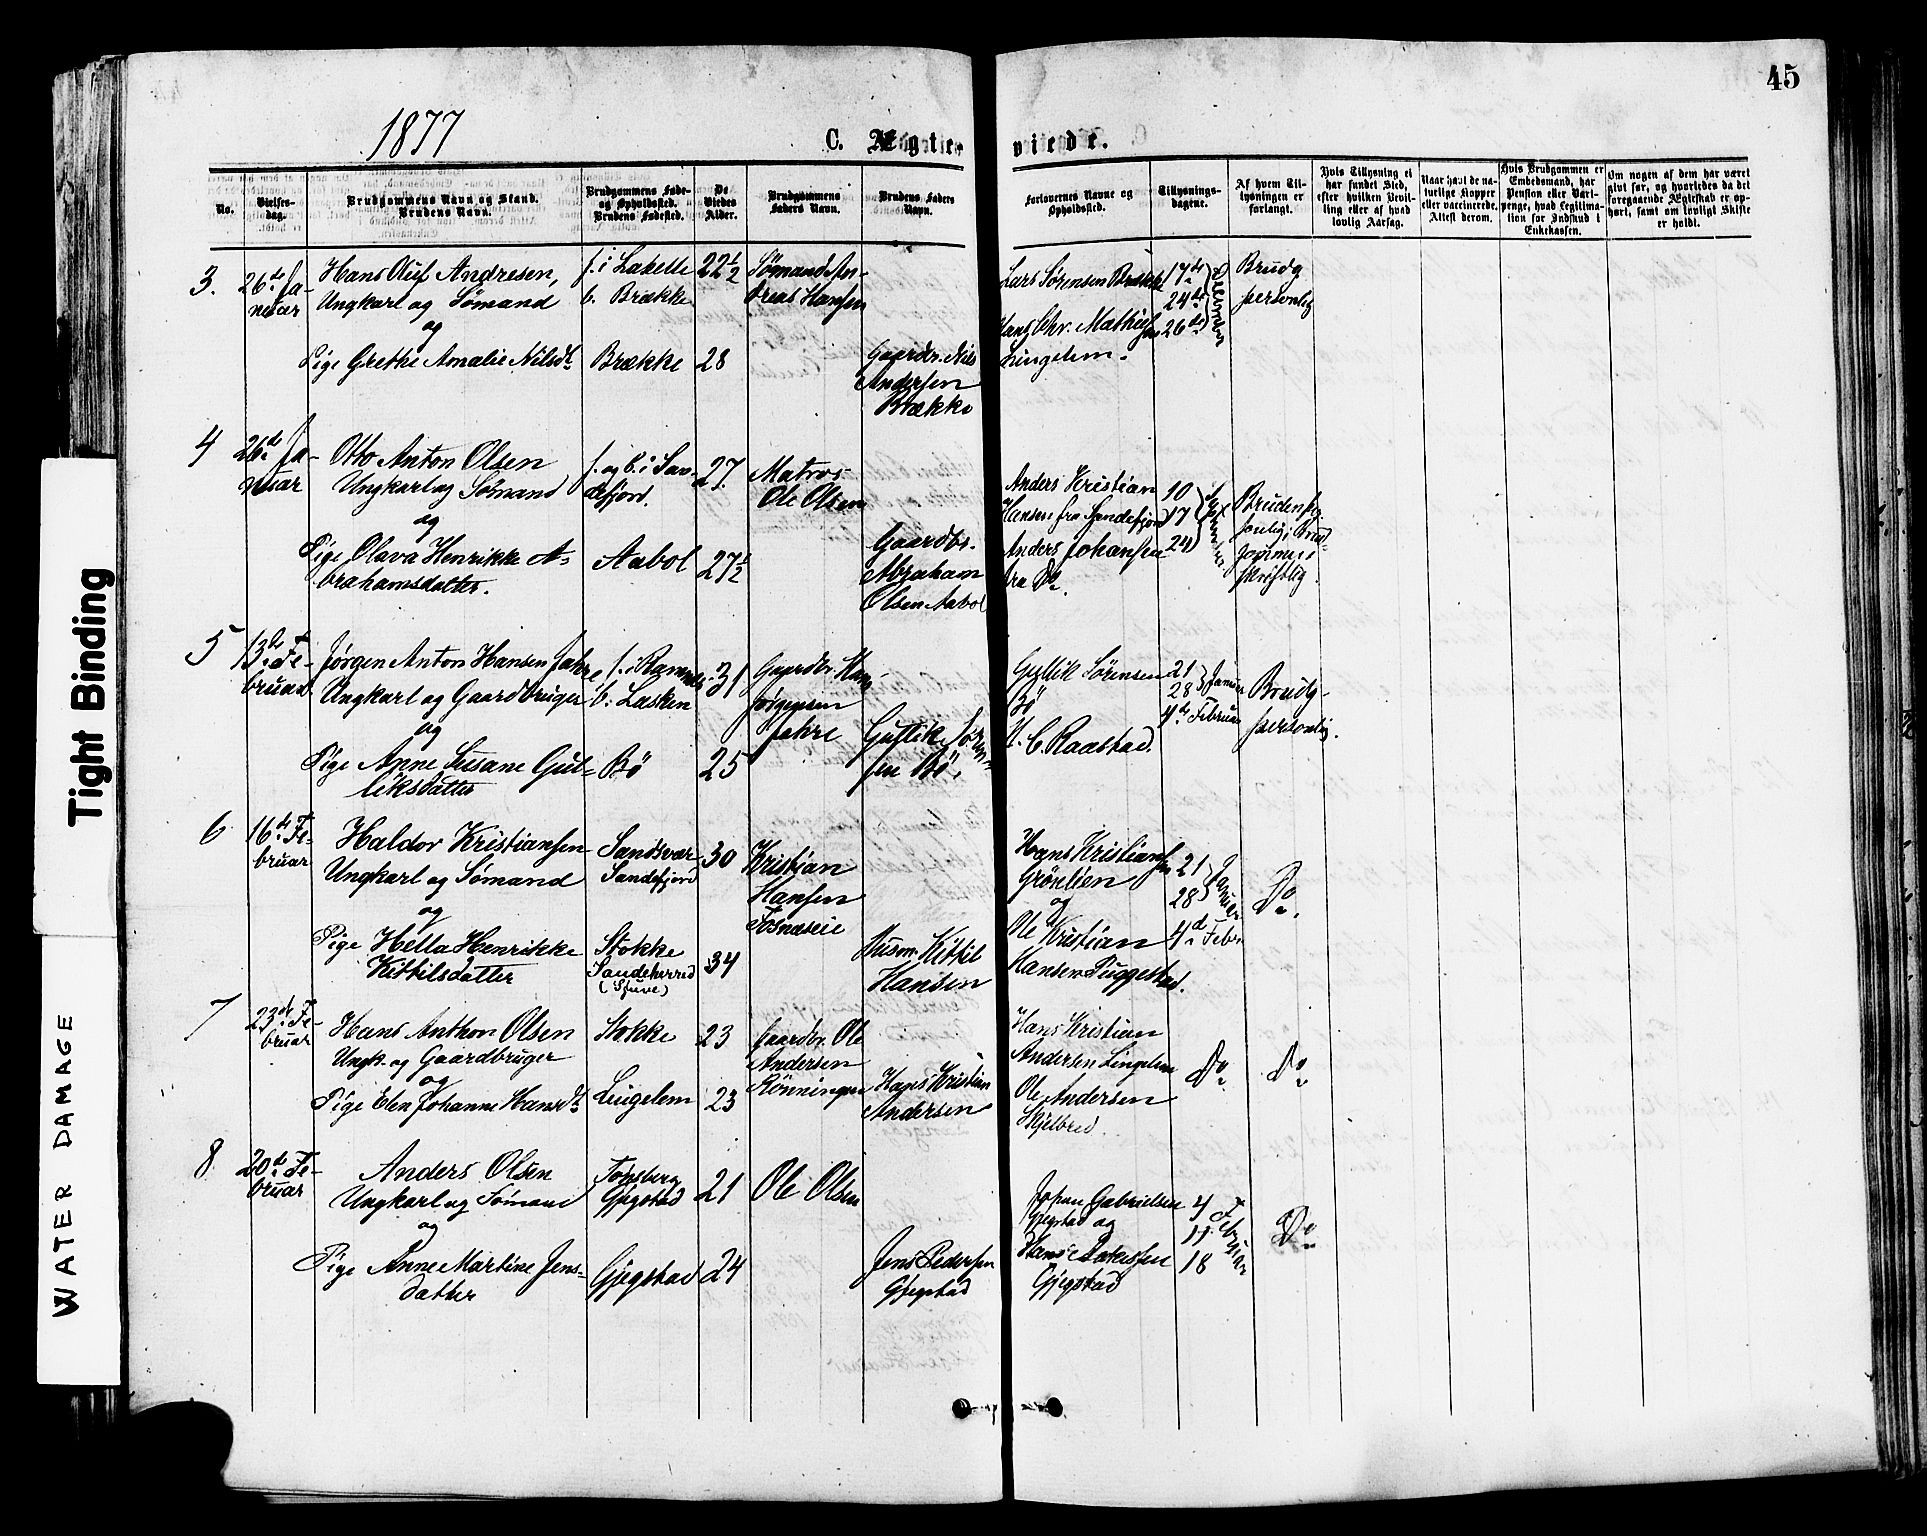 45
1877
C. Ægte
viede.
No.
Vielses-
dag.
Brudgommens Navn og Stand.
Brudens Navn.
Brudgommens Føde-
og Opholdssted.
Brudens Fødested.
De
Viedes
Alder.
Brudgommens
Faders Navn.
Brudens Faders
Navn.
Forlovernes Navne og
Opholdssted.
Tillysnings-
dagene.
Af hvem Til-
lysningen er
forlangt.
Hvis Tillysning ei
har fundet Sted,
efter hvilken Bevil-
ling eller af hvad
lovlig Aarsag.
Naar havt de na-
turlige Kopper
eller vaccinerede.
Attest derom.
Hvis Brudgommen er
Embedsmand, har
Pension eller Var-
penge, hvad Legitima-
tion for Indskud i
Enkekassen.
Om nogen af dem har været
gift før, og hvorledes da det
foregaaende Ægteskab er op-
hørt, samt om lovligt Skifte
er holdt.
3. 26de Ja-
nuar
Hans Oluf Andresen,
Ungkarl og Sømand
og
Pige Grethe Amalie Nilsdt.
f. i Lakelle
b. Brække
Brække
22½
28
Sømand An-
dreas Hansen
Gaardbr. Nils
Andersen
Brække
Lars Sørensen Brække
Hans Chr. Mathisen
Lingelem.
17de
24de
26de
December
Brudg
personlig
4 26de Ja-
nuar
Otto Anton Olsen
Ungkarl og Sømand
og
Pige Olava Henrikke A-
brahamsdatter.
f. og b. i San-
defjord.
Aabol
27
27½
Matros
Ole Olsen
Gaardbr.
Abraham
Olsen Aabol
Anders Kristian
Hansen fra Sandefjord
Anders Johansen
fra Do.
10
17
24
Bruden per-
sonlig; Brud-
gommen
skriftlig.
5 13de Fe-
bruar
Jørgen Anton Hansen Jahre
Ungkarl og Gaardbruger
og
Pige Anne Susane Gul-
liksdatter
f. i Ramnes
b. Lasken
Bö
31
25
Gaardbr. Hans
Jørgensen
Jahre
Gullik Søren-
sen Bö.
Gullik Sørensen
Bö
H. C. Raastad.
21
28 Januar
4de Februar
Brudg-
personlig.
6 16de Fe-
bruar
Haldor Kristiansen
Ungkarl og Sømand
og
Pige Hella Henrikke
Kittilsdatter
Sandsvær
Sandefjord
Stokke
Sandeherred
(Stuve)
30
34
Kristian
Hansen
Fosnæseie
Husm. Kittil
Hansen
Hans Kristiansen
Grönlien
og
Ole Kristian
Hansen Puggestad.
21
28 Januar
4de Febr.
Do.
7 23de Fe-
bruar
Hans Anthon Olsen
Ungk. og Gaardbruger
og
Pige Elen Johanne Hansdt.
Stokke
Lingelem
23
23
Gaardbr. Ole
Andersen
Rönningen
Hans Kristian
Andersen
Hans Kristian
Andersen Lingelem
Ole Andersen
Skjelbred.
Do.
Do.
8 20de Fe-
bruar
Anders Olsen
Ungkarl og Sømand
og
Pige Anne Martine Jens-
datter
Tønsberg
Gjegstad
Gjegstad
21
24
Ole Olsen
Jens Pedersen
Gjegstad
Johan Gabrielsen
Gjegstad og
Hans
Gjegstad
4
11
18
Februar
Do.
Tight Binding
WATER DAMAGE